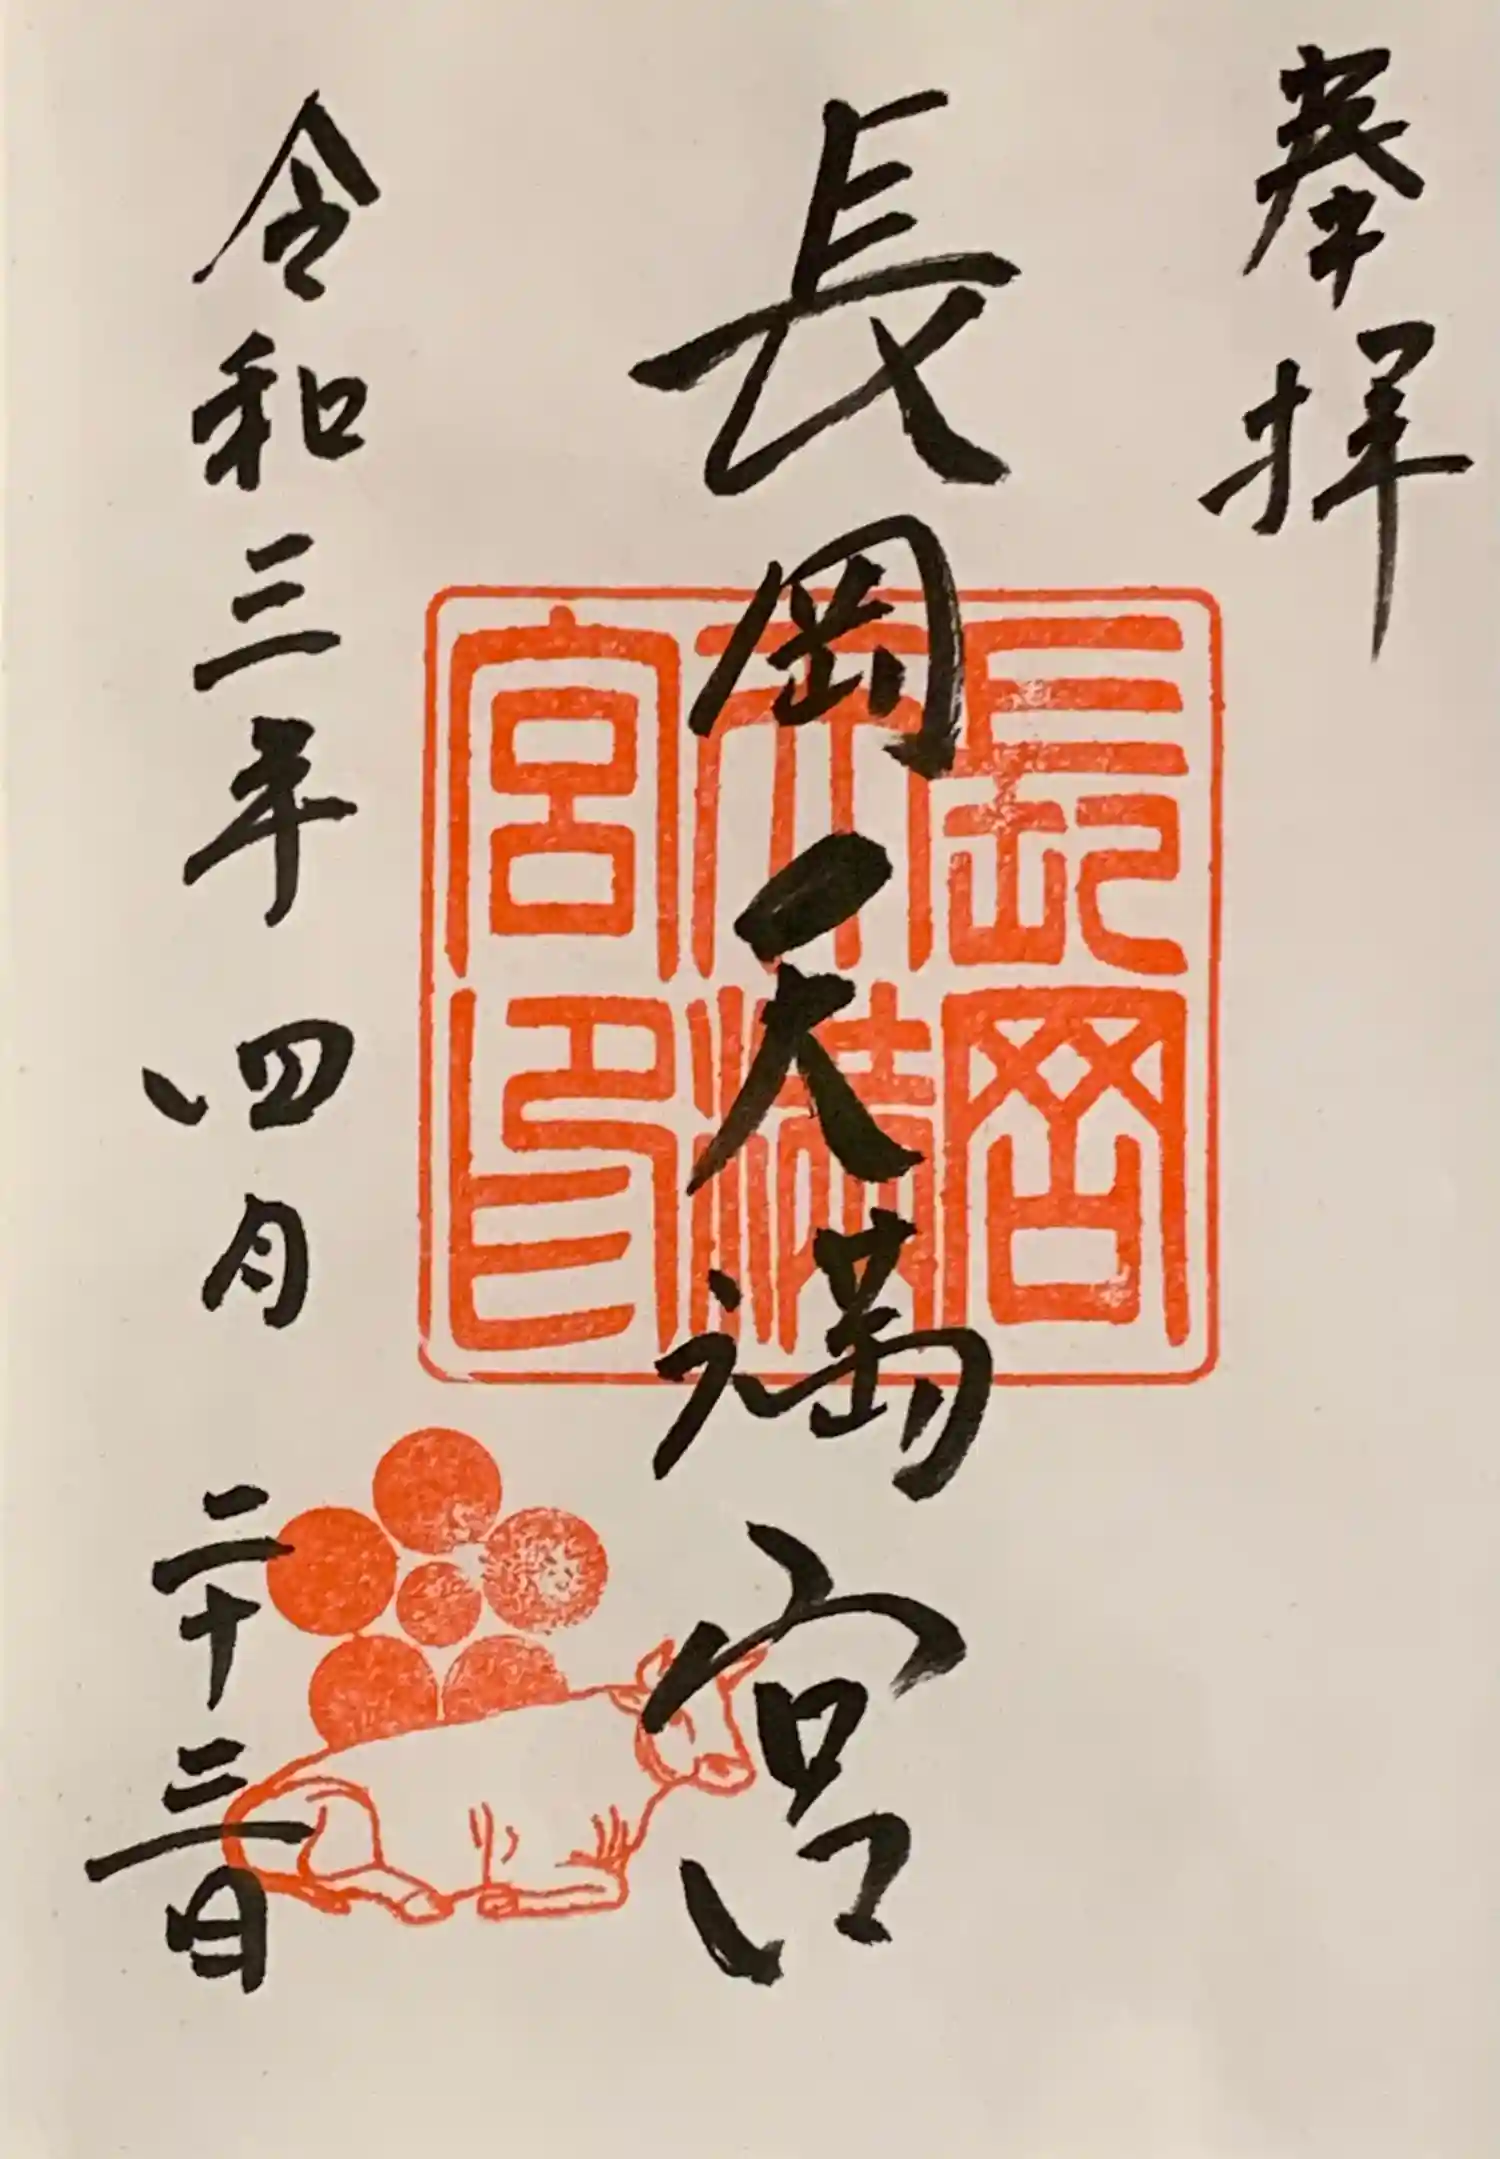 奉拝
長岡天満宮
長岡天満宮印
令和三年四月二十三日